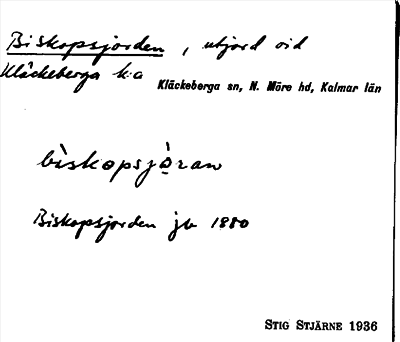 Biskopsjorden, utjord vid
Kläckeberga k:a
Kläckeberga sn, N. Möre hd, Kalmar län
bìskopsjò̤ran
Biskopsjorden jb 1880
STIG STJÄRNE 1936